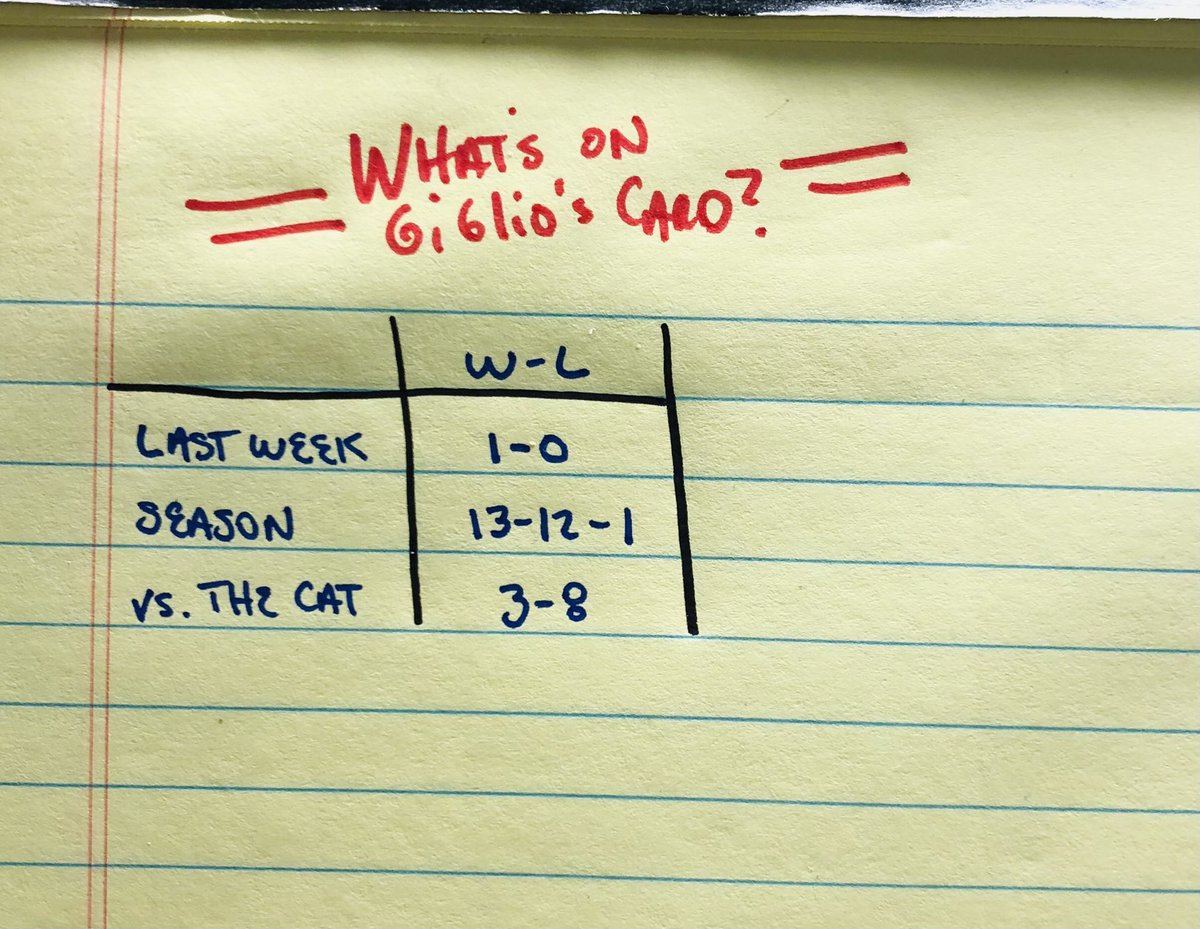 WHAT'S ON
GiGliO's CARD?
W-L
LAST WEEK 1-0
SEASON 13-12-1
VS. THE CAT 3-8